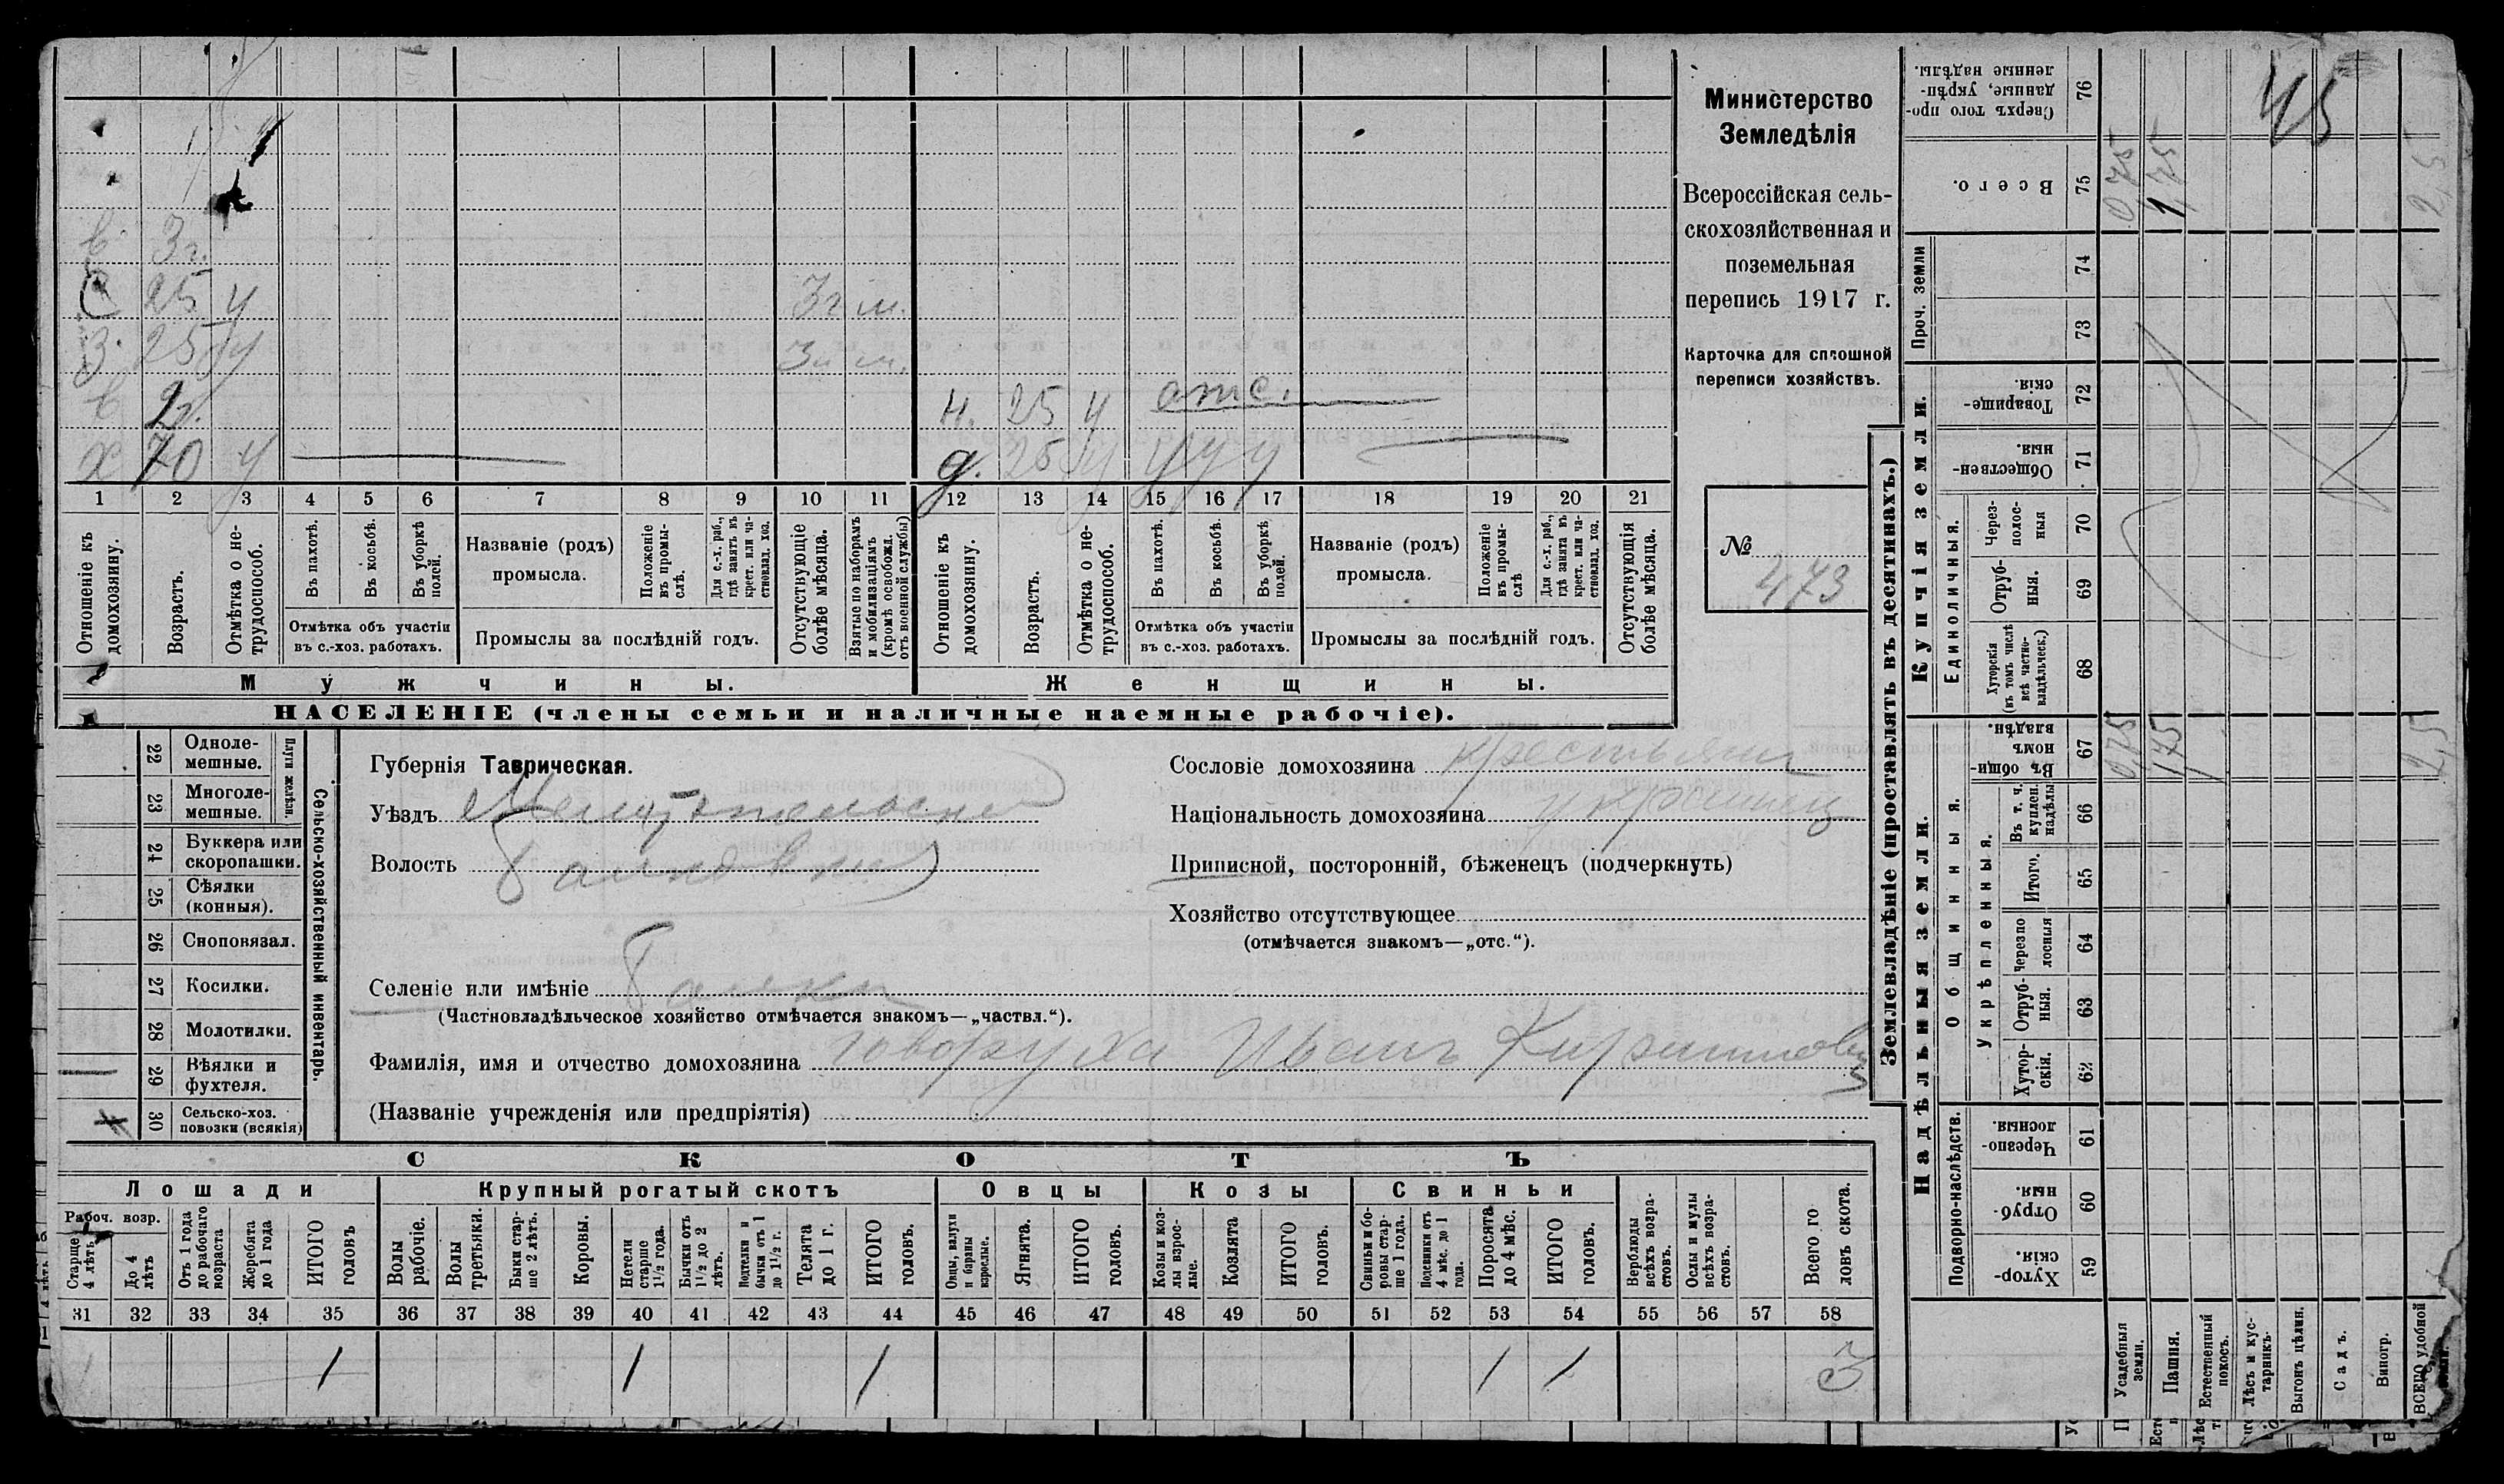 Министерство
Земледѣлія
Всероссійская сель-
скохозяйственная и
поземельная
перепись 1917 г.
Карточка для сплошной
переписи хозяйствъ.
№ 473
45
в. 3 г.
25 у 3 г. м.
З. 25 у 3 г. м.
в 2 г. н. 25 у отс.
х 70 у д. 25 у у у у
1 2 3 4 5 6 7 8 9 10 11 12 13 14 15 16 17 18 19 20 21
Отношеніе къ домохозяину.
Возрастъ.
Отмѣтка о не-трудоспособ.
Въ пахотѣ.
Въ косьбѣ.
Въ уборкѣ полей.
Отмѣтка объ участіи
въ с.-хоз. работахъ.
Названіе (родъ)
промысла.
Положеніе въ промы-слѣ.
Для с.-х. раб., гдѣ занятъ въ крест. или ча-стновлад. хоз.
Промыслы за послѣдній годъ.
Отсутствующіе болѣе мѣсяца.
Взятые по наборамъ и мобилизаціямъ (кромѣ освобожд. отъ военной службы)
Отношеніе къ домохозяину.
Возрастъ.
Отмѣтка о не-трудоспособ.
Въ пахотѣ.
Въ косьбѣ.
Въ уборкѣ полей.
Отмѣтка объ участіи
въ с.-хоз. работахъ.
Названіе (родъ)
промысла.
Положеніе въ промы-слѣ
Для с.-х. раб., гдѣ занята въ крест. или ча-стновлад. хоз.
Промыслы за послѣдній годъ.
Отсутствующія болѣе мѣсяца.
Мужчины.
Женщины.
НАСЕЛЕНІЕ (члены семьи и наличные наемные рабочіе).
Сельско-хозяйственный инвентарь.
Плуги желѣзн.
22 Одноле-мешные.
23 Многоле-мешные.
24 Буккера или скоропашки.
25 Сѣялки (конныя).
26 Сноповязал.
27 Косилки.
28 Молотилки.
29 Вѣялки и фухтеля.
30 Сельско-хоз. повозки (всякія)
Губернія Таврическая.
Уѣздъ Мелитопольскій
Волость Балковская
Селеніе или имѣніе Балки
(Частновладѣльческое хозяйство отмѣчается знакомъ—„частвл.“).
Фамилія, имя и отчество домохозяина Говоруха Иванъ Кириллович
(Названіе учрежденія или предпріятія)
Сословіе домохозяина крестьянин
Національность домохозяина украинец
Приписной, посторонній, бѣженецъ (подчеркнуть)
Хозяйство отсутствующее
(отмѣчается знакомъ—„отс.“).
СКОТЪ
Лошади
Крупный рогатый скотъ
Овцы
Козы
Свиньи
Рабоч. возр.
Старше 4 лѣтъ
До 4 лѣтъ
Отъ 1 года до рабочаго возраста
Жеребята до 1 года
ИТОГО головъ
Волы рабочіе.
Волы третьяки.
Быки стар-ше 2 лѣтъ.
Коровы.
Нетели старше 1½ года.
Бычки отъ 1½ до 2 лѣтъ.
Подтелки и бычки отъ 1 до 1½ г.
Телята до 1 г.
ИТОГО головъ.
Овцы, валухи и бараны взрослые.
Ягнята.
ИТОГО головъ.
Козы и коз-лы взрос-лые.
Козлята
ИТОГО головъ.
Свиньи и бо-ровы стар-ше 1 года.
Подсвинки отъ 4 мѣс. до 1 года.
Поросята до 4 мѣс.
ИТОГО головъ.
Верблюды всѣхъ возра-стовъ.
Ослы и мулы всѣхъ возра-стовъ.
Всего го-ловъ скота.
31 32 33 34 35 36 37 38 39 40 41 42 43 44 45 46 47 48 49 50 51 52 53 54 55 56 57 58
1 1 1 1 1 1 3
Землевладѣніе (проставлять въ десятинахъ.)
Купчія земли.
Надѣльныя земли.
Сверхъ того про-данные, укрѣп-ленные надѣлы. 76
Всего. 75 0,75 1,75 2,5
Проч. земли
74
73
Товарище-скія. 72
Обществен-ныя. 71
Единоличныя.
Через-полос-ныя 70
Отруб-ныя. 69
Хуторскія (въ томъ числѣ всѣ частно-владѣльческ.) 68
Общинныя.
Въ общи-номъ владѣн. 67 0,75 1,75 2,5
Укрѣпленныя.
Въ т. ч. куплен. надѣлы 66
Итого. 65
Черезпо-лосныя 64
Отруб-ныя. 63
Хутор-скія. 62
Подворно-наслѣдств.
Черезпо-лосныя. 61
Отруб-ныя. 60
Хутор-скія. 59
Усадебныя земли.
Пашня.
Естественный покосъ.
Лѣсъ и кус-тарникъ.
Выгонъ цѣлин.
Садъ.
Виногр.
ВСЕГО удобной